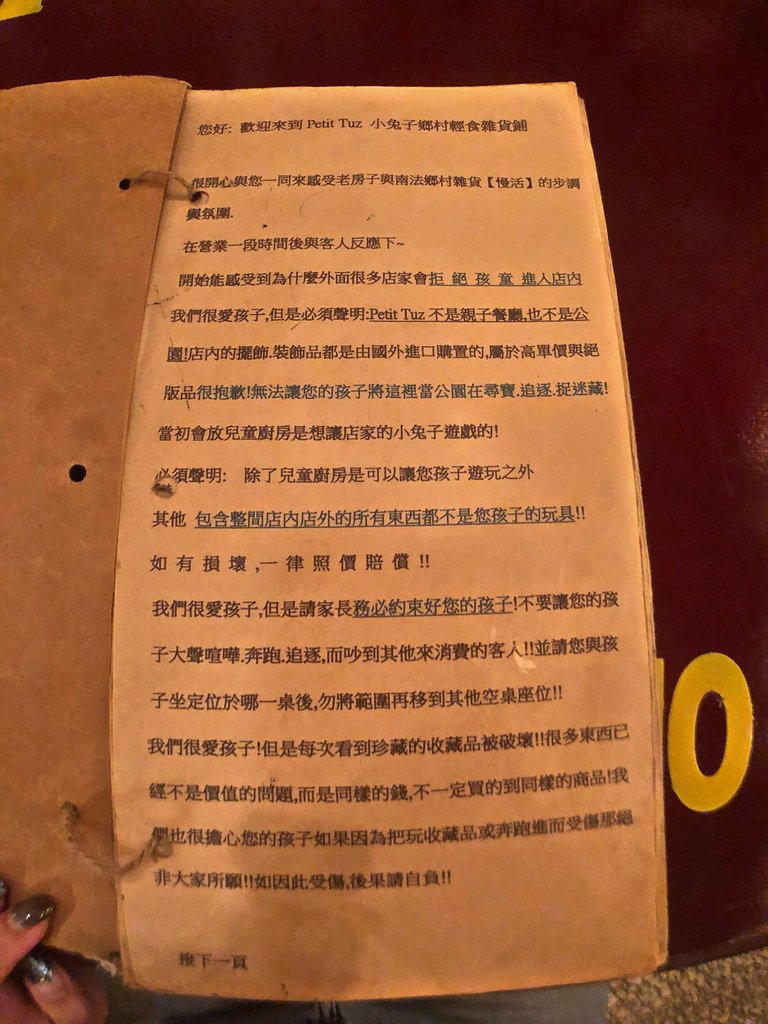 您好: 歡迎來到 Petit Tuz 小兔子鄉村輕食雜貨鋪
很開心與您一同來感受老房子與南法鄉村雜貨【慢活】的步調
與氛圍.
在營業一段時間後與客人反應下~
開始能感受到為什麼外面很多店家會拒 絕 孩 童 進入店內
我們很愛孩子,但是必須聲明:Petit Tuz 不是親子餐廳,也不是公
園!店內的擺飾.裝飾品都是由國外進口購置的,屬於高單價與絕
版品很抱歉!無法讓您的孩子將這裡當公園在尋寶.追逐.捉迷藏!
當初會放兒童廚房是想讓店家的小兔子遊戲的!
必須聲明: 除了兒童廚房是可以讓您孩子遊玩之外
其他 包含整間店內店外的所有東西都不是您孩子的玩具!!
如 有 損 壞 ,一 律 照 價 賠 償 !!
我們很愛孩子,但是請家長務必約束好您的孩子!不要讓您的孩
子大聲喧嘩.奔跑.追逐,而吵到其他來消費的客人!!並請您與孩
子坐定位於哪一桌後,勿將範圍再移到其他空桌座位!!
我們很愛孩子!但是每次看到珍藏的收藏品被破壞!!很多東西已
經不是價值的問題,而是同樣的錢,不一定買的到同樣的商品!我
們也很擔心您的孩子如果因為把玩收藏品或奔跑進而受傷那絕
非大家所願!!如因此受傷,後果請自負!!
接下一頁
0